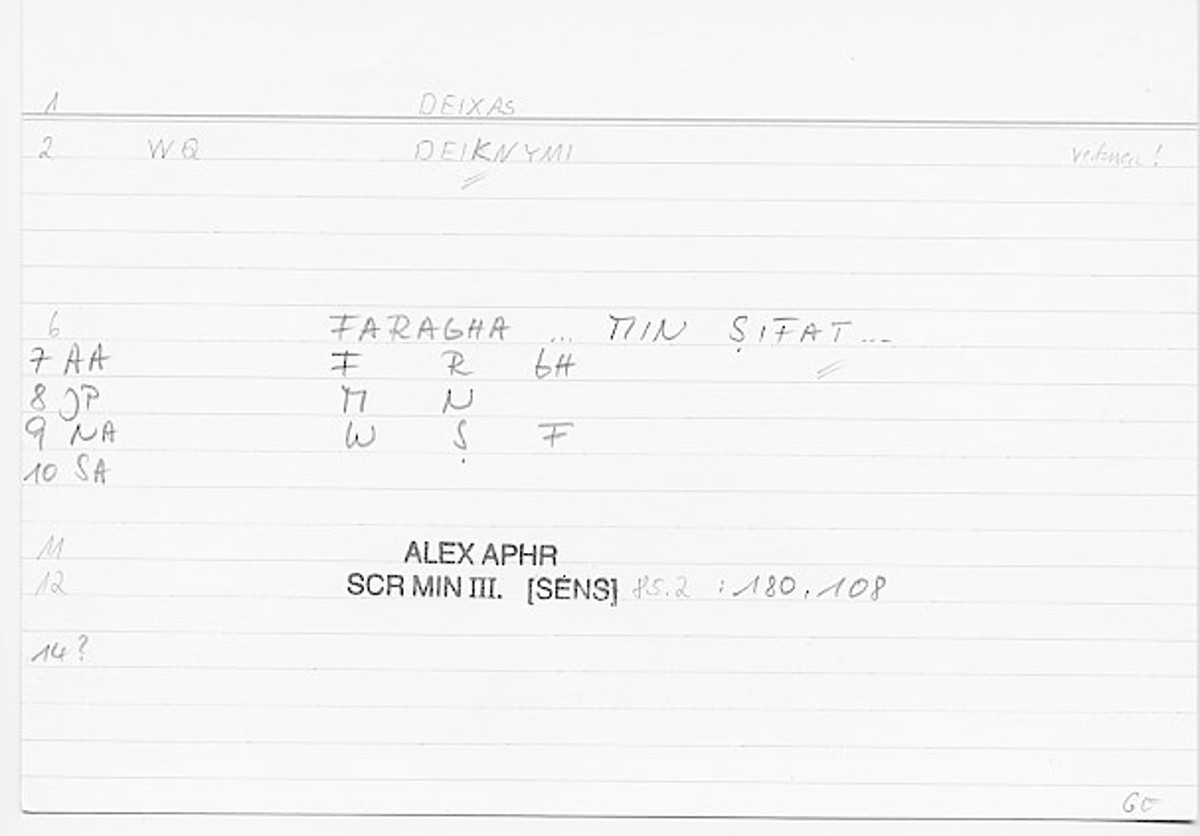 1 DEIXAS
2 WQ DEIKNYMI
6 FARAGHA ... MIN ṢIFAT...
7 AA F R GH
8 JP M N
9 NA W Ṣ F
10 SA
11 ALEX APHR
12 SCR MIN III. [SENS] 85.2 : 180,108
14?